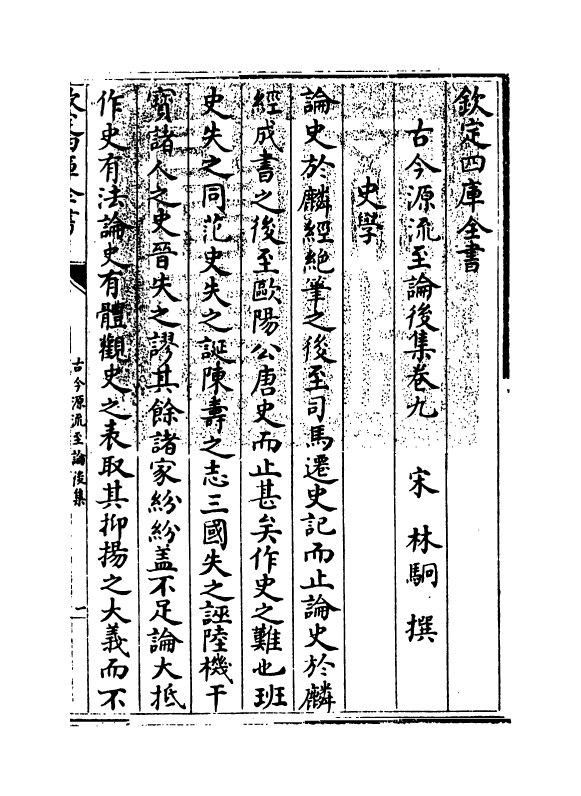 欽定四庫全書
古今源流至論後集卷九　宋　林駉　撰
史學
論史於麟經絶筆之後至司馬遷史記而止論史於麟
經成書之後至歐陽公唐史而止甚矣作史之難也班
史失之同范史失之誕陳壽之志三國失之誣陸機干
寳諸人之史晉失之謬其餘諸家紛紛盖不足論大抵
作史有法論史有體觀史之表取其抑揚之大義而不
古今源流至論後集